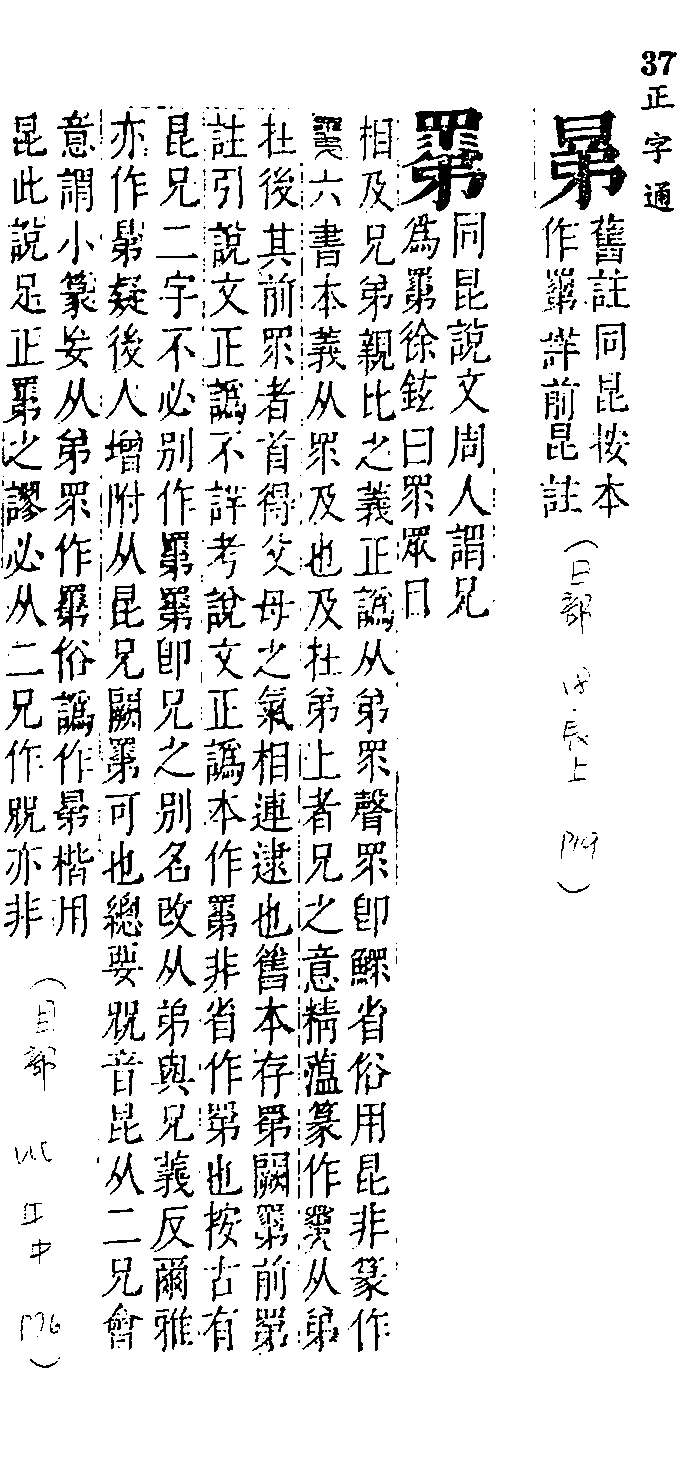 37
正字通
晜 舊註同昆按本
作𥊽詳前昆註
(日部 辰上 P19)
𥊽 同昆說文周人謂兄
爲𥊽徐鉉曰眔眾曰
相及兄弟親比之義正譌从弟眔聲眔卽鰥省俗用昆非篆作
𥊽六書本義从眔及也及在弟上者兄之意精薀篆作𥊽从弟
在後其前眔者首得父母之氣相連逮也舊本存罤闕𥊽前罤
註引說文正譌不詳考說文正譌本作𥊽非省作罤也按古有
昆兄二字不必別作𥊽𥊽卽兄之別名改从弟與兄義反爾雅
亦作晜疑後人增附从昆兄闕𥊽可也總要音昆从二兄會
意謂小篆妄从弟眔作𥊽俗譌作晜楷用
昆此說足正𥊽之謬必从二兄作亦非
(目部 午中 P76)